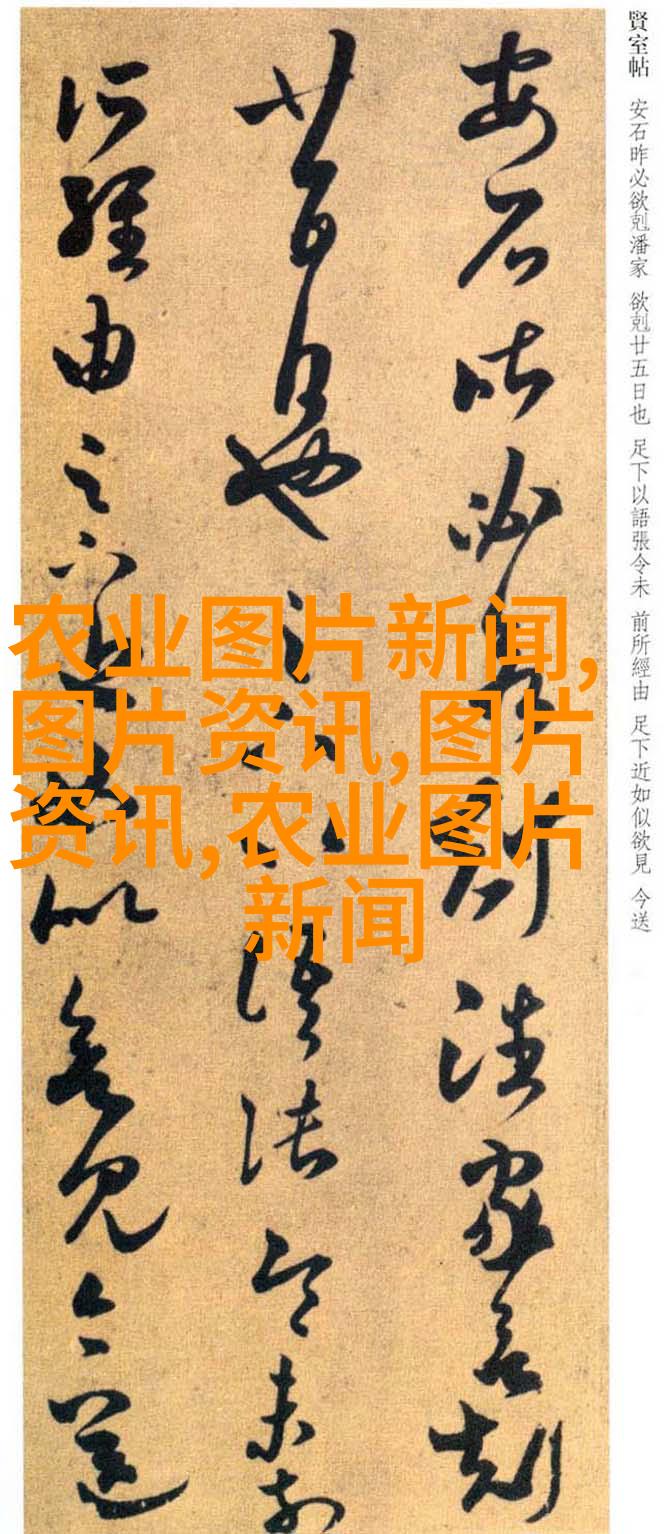 賢室帖 安石昨必欲剋潘家 欲剋廿五日也 足下以語張令未 前所經由 足下近如似欲見 今送
安石昨必欲剋潘家欲剋
廿五日也足下以語張令未前
所經由足下近如似欲見今送
农业图片新闻,
图片资讯,图片
资讯,农业图片
新闻